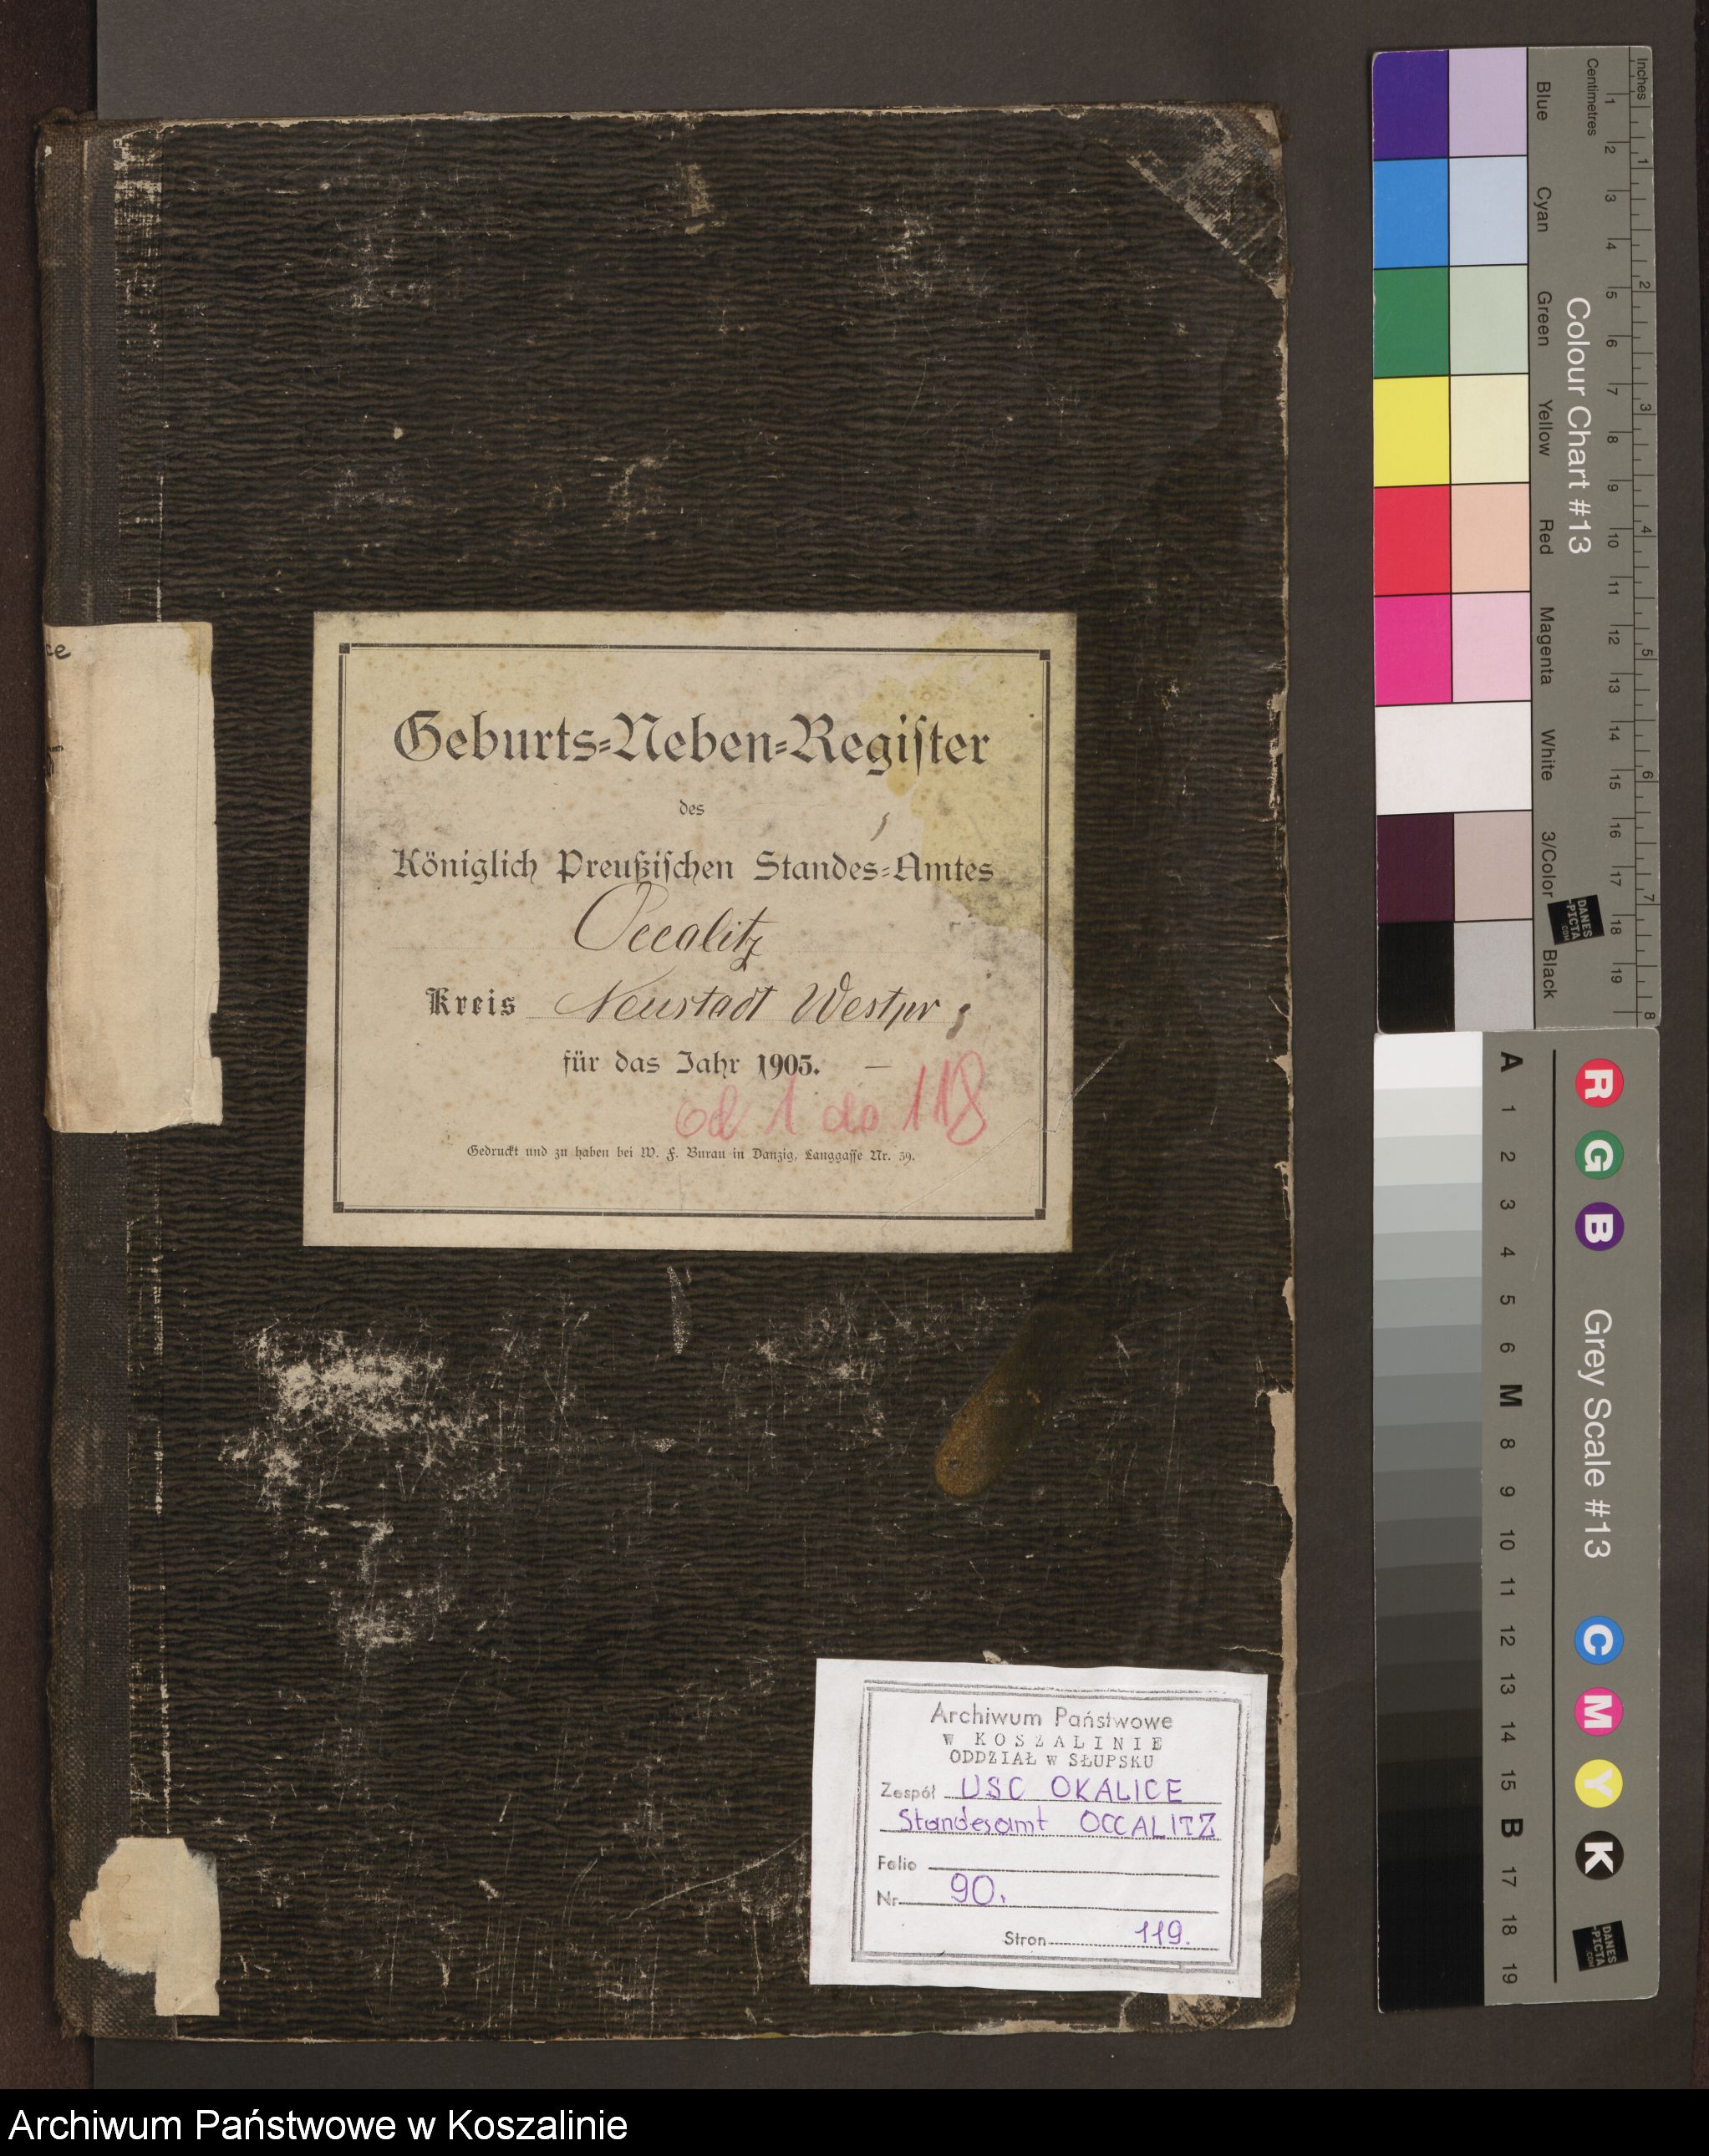 ce
Geburts=Neben=Regiſter
des
Königlich Preußiſchen Standes=Amtes
Occalitz
Kreis Neustadt Westpr
für das Jahr 1905. —
od 1 do 118
Gedruckt und zu haben bei W. F. Burau in Danzig, Langgaſſe Nr. 39.
Archiwum Państwowe
W KOSZALINIE
ODDZIAŁ W SŁUPSKU
Zespół USC OKALICE
Standesamt OCCALITZ
Folio
Nr 90.
Stron 119.
Inches
1 2 3 4 5 6 7 8
Centimetres
1 2 3 4 5 6 7 8 9 10 11 12 13 14 15 16 17 18 19
Colour Chart #13
Blue Cyan Green Yellow Red Magenta White 3/Color Black
DANES
-PICTA
.COM
A 1 2 3 4 5 6 M 8 9 10 11 12 13 14 15 B 17 18 19
R G B
Grey Scale #13
C M Y K
DANES
-PICTA
.COM
Archiwum Państwowe w Koszalinie